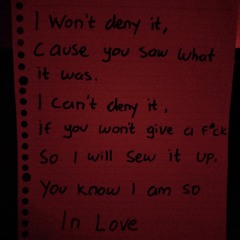 I Won't deny it,
Cause you saw what
it was.
I Can't deny it,
if you won't give a F*ck
So I will sew it up.
You know I am so
In Love